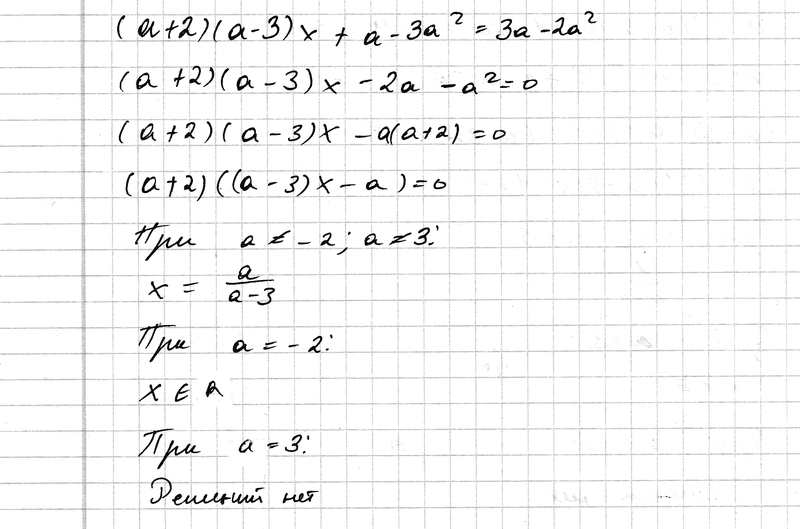 (a+2)(a-3)x + a - 3a² = 3a - 2a²
(a+2)(a-3)x - 2a - a² = 0
(a+2)(a-3)x - a(a+2) = 0
(a+2)((a-3)x - a) = 0
При a ≠ -2; a ≠ 3:
x = a/(a-3)
При a = -2:
x ∈ R
При a = 3:
Решений нет